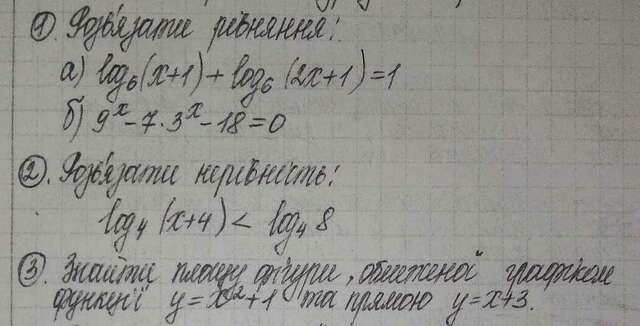 1. Розв'язати рівняння:
а) log₆(x+1) + log₆(2x+1) = 1
б) 9ˣ - 7·3ˣ - 18 = 0
2. Розв'язати нерівність:
log₄(x+4) < log₄ 8
3. Знайти площу фігури, обмеженої графіком
функції y = x² + 1 та прямою y = x+3.